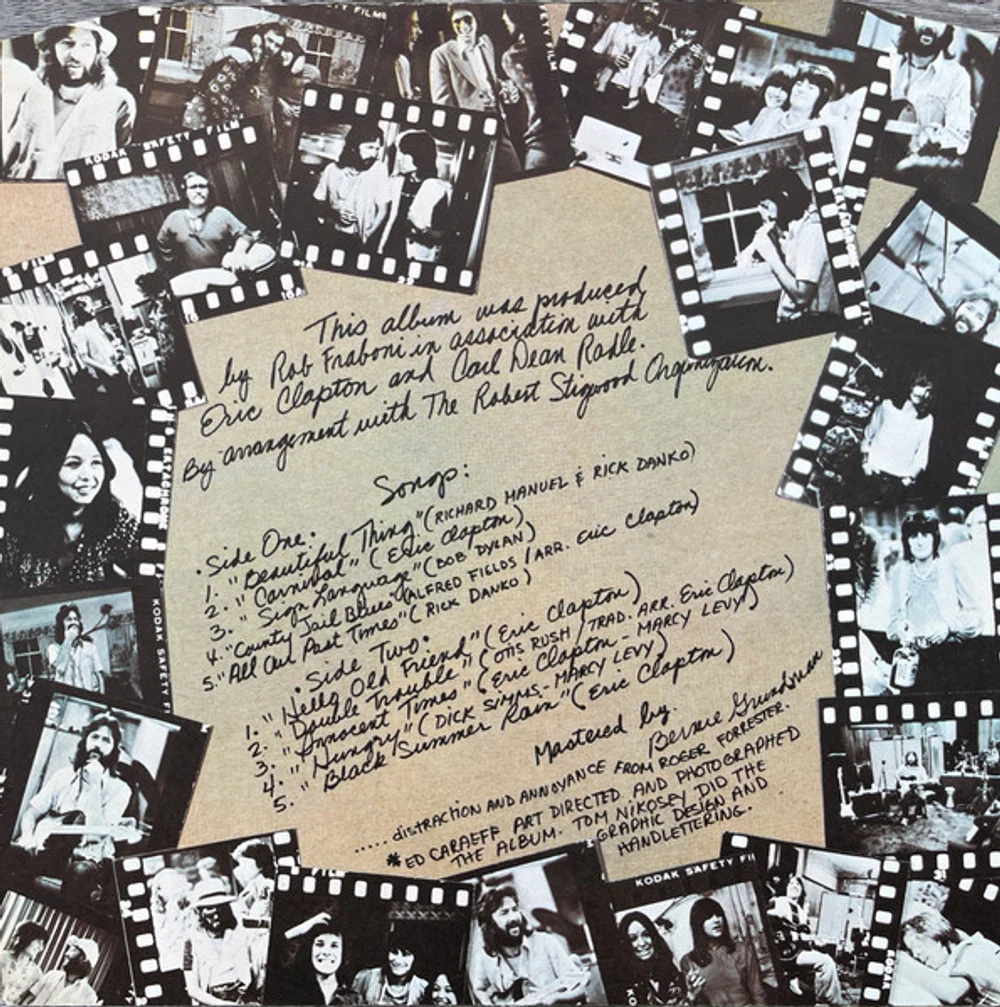 This album was produced
by Rob Fraboni in association with
Eric Clapton and Carl Dean Radle.
By arrangement with The Robert Stigwood Organization.
Songs:
• Side One:
1. "Beautiful Thing" (RICHARD MANUEL & RICK DANKO)
2. "Carnival" (Eric Clapton)
3. "Sign Language" (BOB DYLAN)
4. "County Jail Blues" (ALFRED FIELDS / ARR. Eric Clapton)
5. "All Our Past Times" (RICK DANKO)
• Side Two:
1. "Hello Old Friend" (Eric Clapton)
2. "Double Trouble" (OTIS RUSH / TRAD. ARR. Eric Clapton)
3. "Innocent Times" (Eric Clapton - MARCY LEVY)
4. "Hungry" (DICK SIMMS - MARCY LEVY)
5. "Black Summer Rain" (Eric Clapton)
Mastered by.
Bernie Grundman
..... distraction AND ANNOYANCE FROM ROGER FORRESTER.
* ED CARAEFF ART DIRECTED AND PHOTOGRAPHED
THE ALBUM. TOM NIKOSEY DID THE
GRAPHIC DESIGN AND
HANDLETTERING.
KODAK SAFETY FILM
KODAK SAFETY F
KODAK SAFETY FI